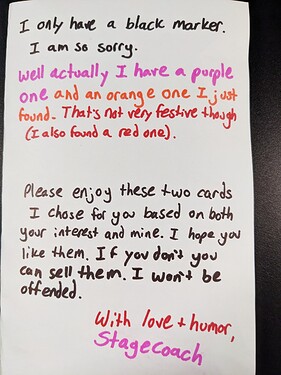 I only have a black marker.
I am so sorry.
Well actually I have a purple
one and an orange one I just
found. That's not very festive though
(I also found a red one).
Please enjoy these two cards
I chose for you based on both
your interest and mine. I hope you
like them. If you don't you
can sell them. I won't be
offended.
With love + humor,
Stagecoach